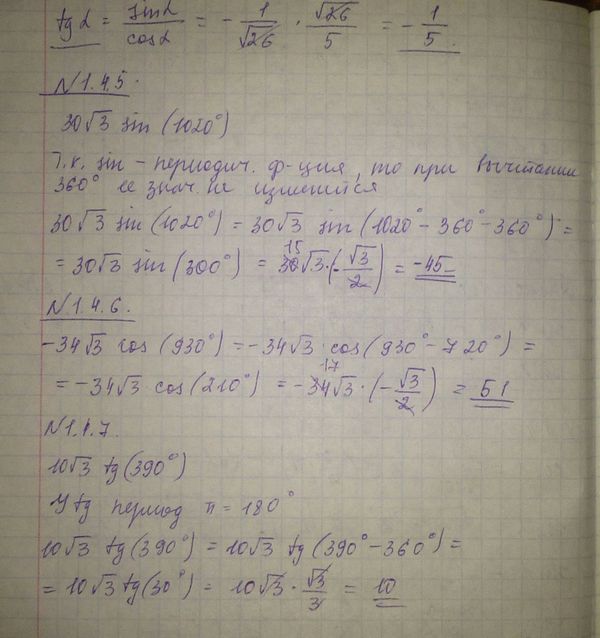 tg α = sin α / cos α = - 1/√26 · √26/5 = - 1/5
N 1.4.5.
30√3 sin (1020°)
Т.к. sin - периодич. ф-ция, то при вычитании
360° ее знач. не изменится
30√3 sin (1020°) = 30√3 sin (1020° - 360° - 360°) =
= 30√3 sin (300°) = 30 15 √3 · (-√3/2) = -45
N 1.4.6.
-34√3 cos (930°) = -34√3 · cos (930° - 720°) =
= -34√3 · cos (210°) = -34 17 √3 · (-√3/2) = 51
N 1.4.7.
10√3 tg (390°)
У tg период π = 180°
10√3 tg (390°) = 10√3 tg (390° - 360°) =
= 10√3 tg (30°) = 10√3 · √3/3 = 10